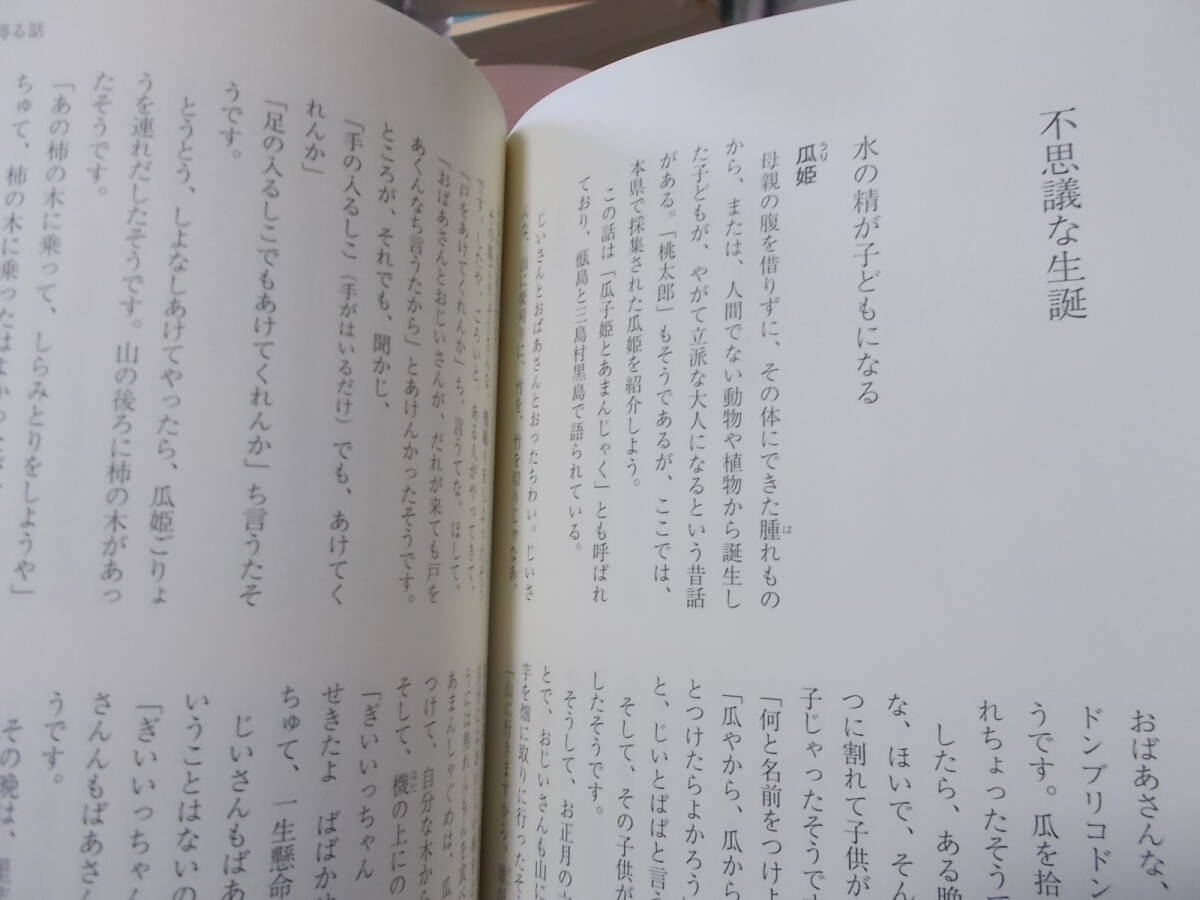 不思議な生誕
水の精が子どもになる
瓜姫
うり
母親の腹を借りずに、その体にできた腫れもの
は
から、または、人間でない動物や植物から誕生し
た子どもが、やがて立派な大人になるという昔話
がある。「桃太郎」もそうであるが、ここでは、
本県で採集された瓜姫を紹介しよう。
この話は「瓜子姫とあまんじゃく」とも呼ばれ
ており、甑島と三島村黒島で語られている。
じいさんとおばあさんとおったちわい。じいさ
おばあさんな、
ドンブリコドン
うです。瓜を拾
れちょったそう
したら、ある晩
な、ほいで、そん
つに割れて子供が
子じゃったそうです
「何と名前をつけよ
「瓜やから、瓜から
とつけたらよかろう
と、じいとばばと言う
そして、その子供が
したそうです。
そうして、お正月の
とで、おじいさんも山に
芋を畑に取りに行ったそ
「山に行きますから、
得る話
「戸をあけてくれんか」ち、言うてな、ほして、
「おばあさんとおじいさんが、だれが来ても戸を
あくんなち言うたから」とあけんかったそうです。
ところが、それでも、聞かじ、
「手の入るしこ(手がはいるだけ)でも、あけてく
れんか」
「足の入るしこでもあけてくれんか」ち言うたそ
うです。
とうとう、しよなしあけてやったら、瓜姫ごりょ
うを連れだしたそうです。山の後ろに柿の木があっ
たそうです。
「あの柿の木に乗って、しらみとりをしようや」
ちゅて、柿の木に乗ったは
あまんしゃぐめは、瓜
つけて、自分な木から
そして、機の上にの
はた
「ぎいいっちゃん
せきたよ ばばか
ちゅて、一生懸命
じいさんもばあ
いうことはないの
「ぎいいっちゃん
さんもばあさん
うです。
その晩は、